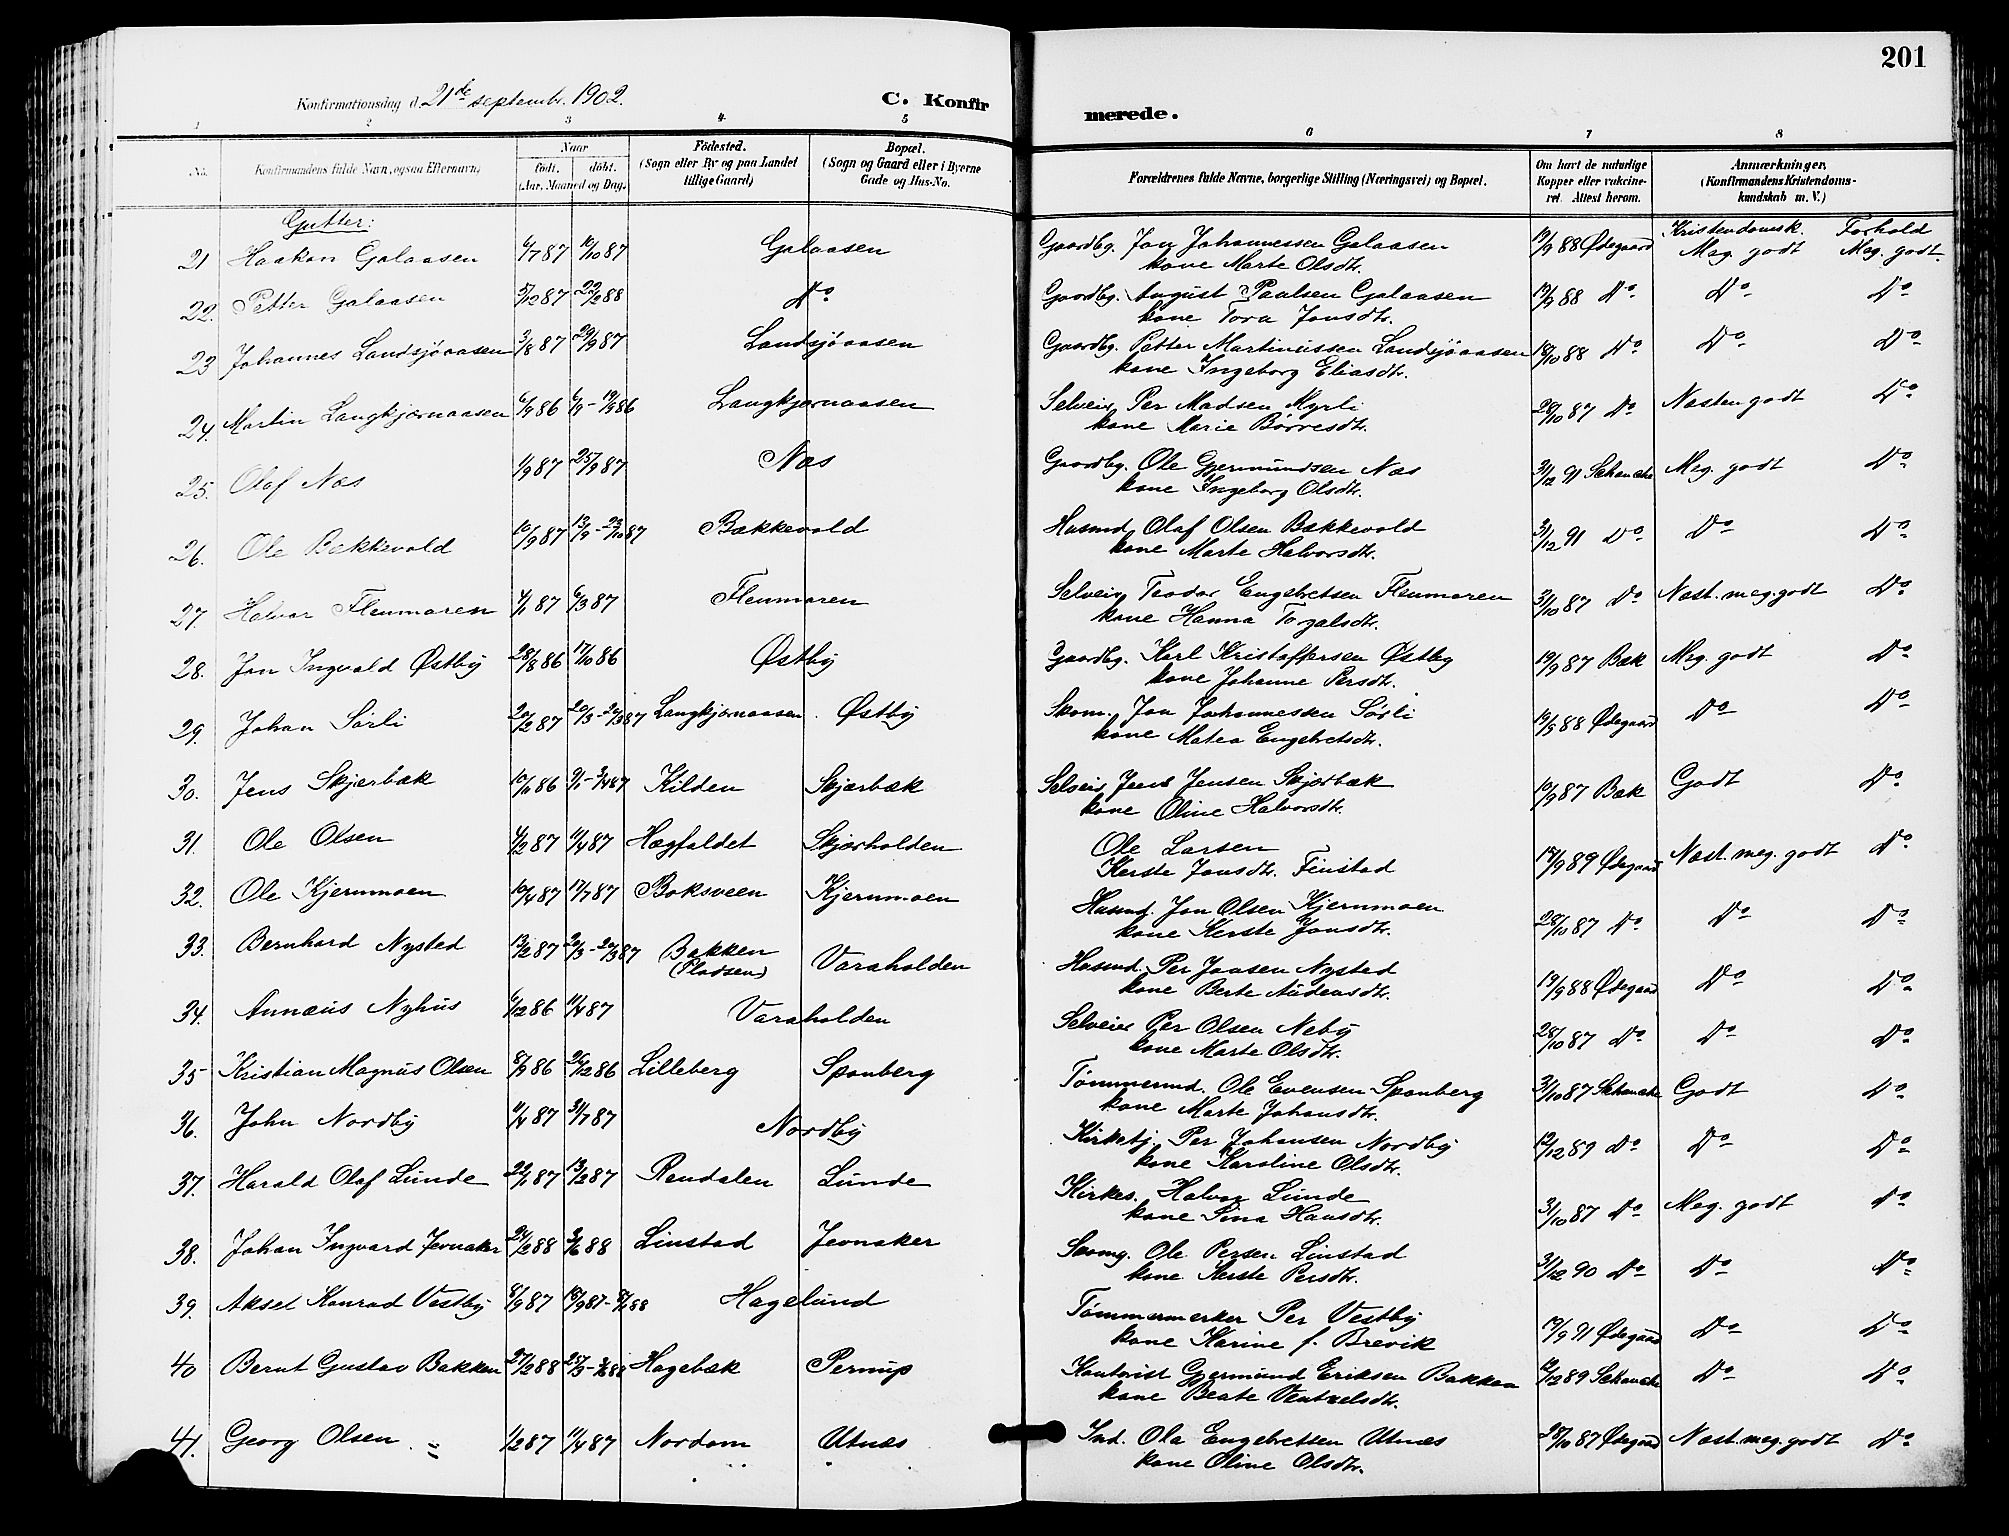 201
Konfirmationsdag d. 21de septembr. 1902.
C. Konfir
merede.
1 2 3 4 5 6 7 8
No. Konfirmandens fulde Navn, ogsaa Efternavn) Naar Födested. Bopæl.
födt. döbt. (Sogn eller By og paa Landet tillige Gaard) (Sogn og Gaard eller i Byerne Gade og Hus-No.
(Aar, Maaned og Dag.
Forældrenes fulde Navne, borgerlige Stilling (Næringsvei) og Bopæl.
Om havt de naturlige Kopper eller vakcineret. Attest herom.
Anmærkninger, (Konfirmandens Kristendomskundskab m. V.)
Gutter: Kristendomsk. Forhold
21 Haakon Galaasen 6/7 87 10/10 87 Galaasen Gaardbg. Jon Johannessen Galaasen 19/9 88 Ødegaard Meg. godt Meg. godt.
kone Marte Olsdtr.
22. Petter Galaasen 5/12 87 22/2 88 Do Gaardbg. August Paulsen Galaasen 19/9 88 Do Do Do
kone Tora Jonsdtr.
23 Johannes Landsjöaasen 3/8 87 29/9 87 Landsjöaasen Gaardbg. Petter Martinussen Landsjöaasen 18/10 88 Do Do Do
kone Ingeborg Eliasdtr.
24. Martin Langkjærnaasen 6/9 86 6/9 - 19/9 86 Langkjærnaasen Selveier Per Madsen Myrli 28/10 87 Do Næsten godt Do
kone Marie Börresdtr.
25. Olaf Næs 1/9 87 25/9 87 Næs Gaardbg. Ole Gjermundsen Næs 31/12 91 Schancke Meg. godt Do
kone Ingeborg Olsdtr.
26. Ole Bækkevold 10/9 87 13/9 - 23/10 87 Bækkevold Husmd. Olaf Olsen Bækkevold 31/12 91 Do Do Do
kone Marte Halvorsdtr.
27. Halvor Flenmoren 4/1 87 6/3 87 Flenmoren Selveier Teodor Engebretsen Flenmoren 31/10 87 Do Næst. meg. godt Do
kone Hanna Torgalsdtr.
28. Jon Ingvald Østby 28/8 86 17/10 86 Østby Gaardbg. Karl Kristoffersen Østby 19/9 87 Bæk Meg. godt Do
kone Johanne Persdtr.
29. Johan Sörli 20/2 87 20/3 - 24/3 87 Langkjærnaasen. Østby Skom. Jon Johannessen Sörli 19/9 88 Ødegaard Do Do
kone Matea Engebretsdtr.
30. Jens Skjærbæk Kilden Skjærbæk Selveier Jens Jensen Skjærbæk 19/9 87 Bæk Godt Do
kone Oline Halvorsdtr.
31. Ole Olsen 4/2 87 11/4 87 Hægfaldet Skjærholden Ole Larsen 17/9 89 Ødegaard Næst. meg. godt Do
Kerste Jonsdtr. Finstad
32. Ole Kjernmoen 10/4 87 17/7 87 Boksveen Kjernmoen Husmd. Jon Olsen Kjernmoen 28/10 87 Do Do Do
kone Kerste Jonsdtr.
33. Bernhard Nysted 13/2 87 Bakken (Pladsen) Varaholden Husmd. Per Jonsen Nysted 19/9 88 Ødegaard Do Do
kone Berte Audensdtr.
34. Annæus Nyhus 6/12 86 11/4 87 Varaholden Selveier Per Olsen Neby 28/10 87 Do Do Do
kone Marte Olsdtr.
35 Kristian Magnus Olsen 8/9 86 26/12 86 Lilleberg Sponberg Tömmermd. Ole Evensen Sponberg 31/10 87 Schancke Godt Do
kone Marte Johansdtr.
36. John Nordby 11/4 87 31/7 87 Nordby Kirketj. Per Johansen Nordby 12/12 89 Do Do Do
kone Karoline Olsdtr.
37. Harald Olaf Lunde 22/1 87 13/2 87 Rendalen Lunde Kirkes. Halvor Lunde 31/10 87 Do Meg. godt Do
kone Sina Hansdtr.
38. Johan Ingvard Jevnaker 29/2 88 3/6 88 Linstad Jevnaker Ole Persen Linstad 31/12 90 Do Do Do
kone Kerste Persdtr.
39. Aksel Konrad Vestby 8/9 87 Hagelund Tömmermerker Per Vestby 19/9 91 Ødegaard Do Do
kone Karine f. Brevik
40 Bernt Gustav Bakken 27/2 88 Hagebæk Pernup Kontorist Gjermund Eriksen Bakken 12/12 89 Schancke Do Do
kone Beate Ventzelsdtr.
41. Georg Olsen 1/2 87 11/4 87 Nordom Utnæs Ind. Ola Engebretsen Utnæs 28/10 87 Ødegaard Næst. meg. godt Do
kone Oline Olsdtr.